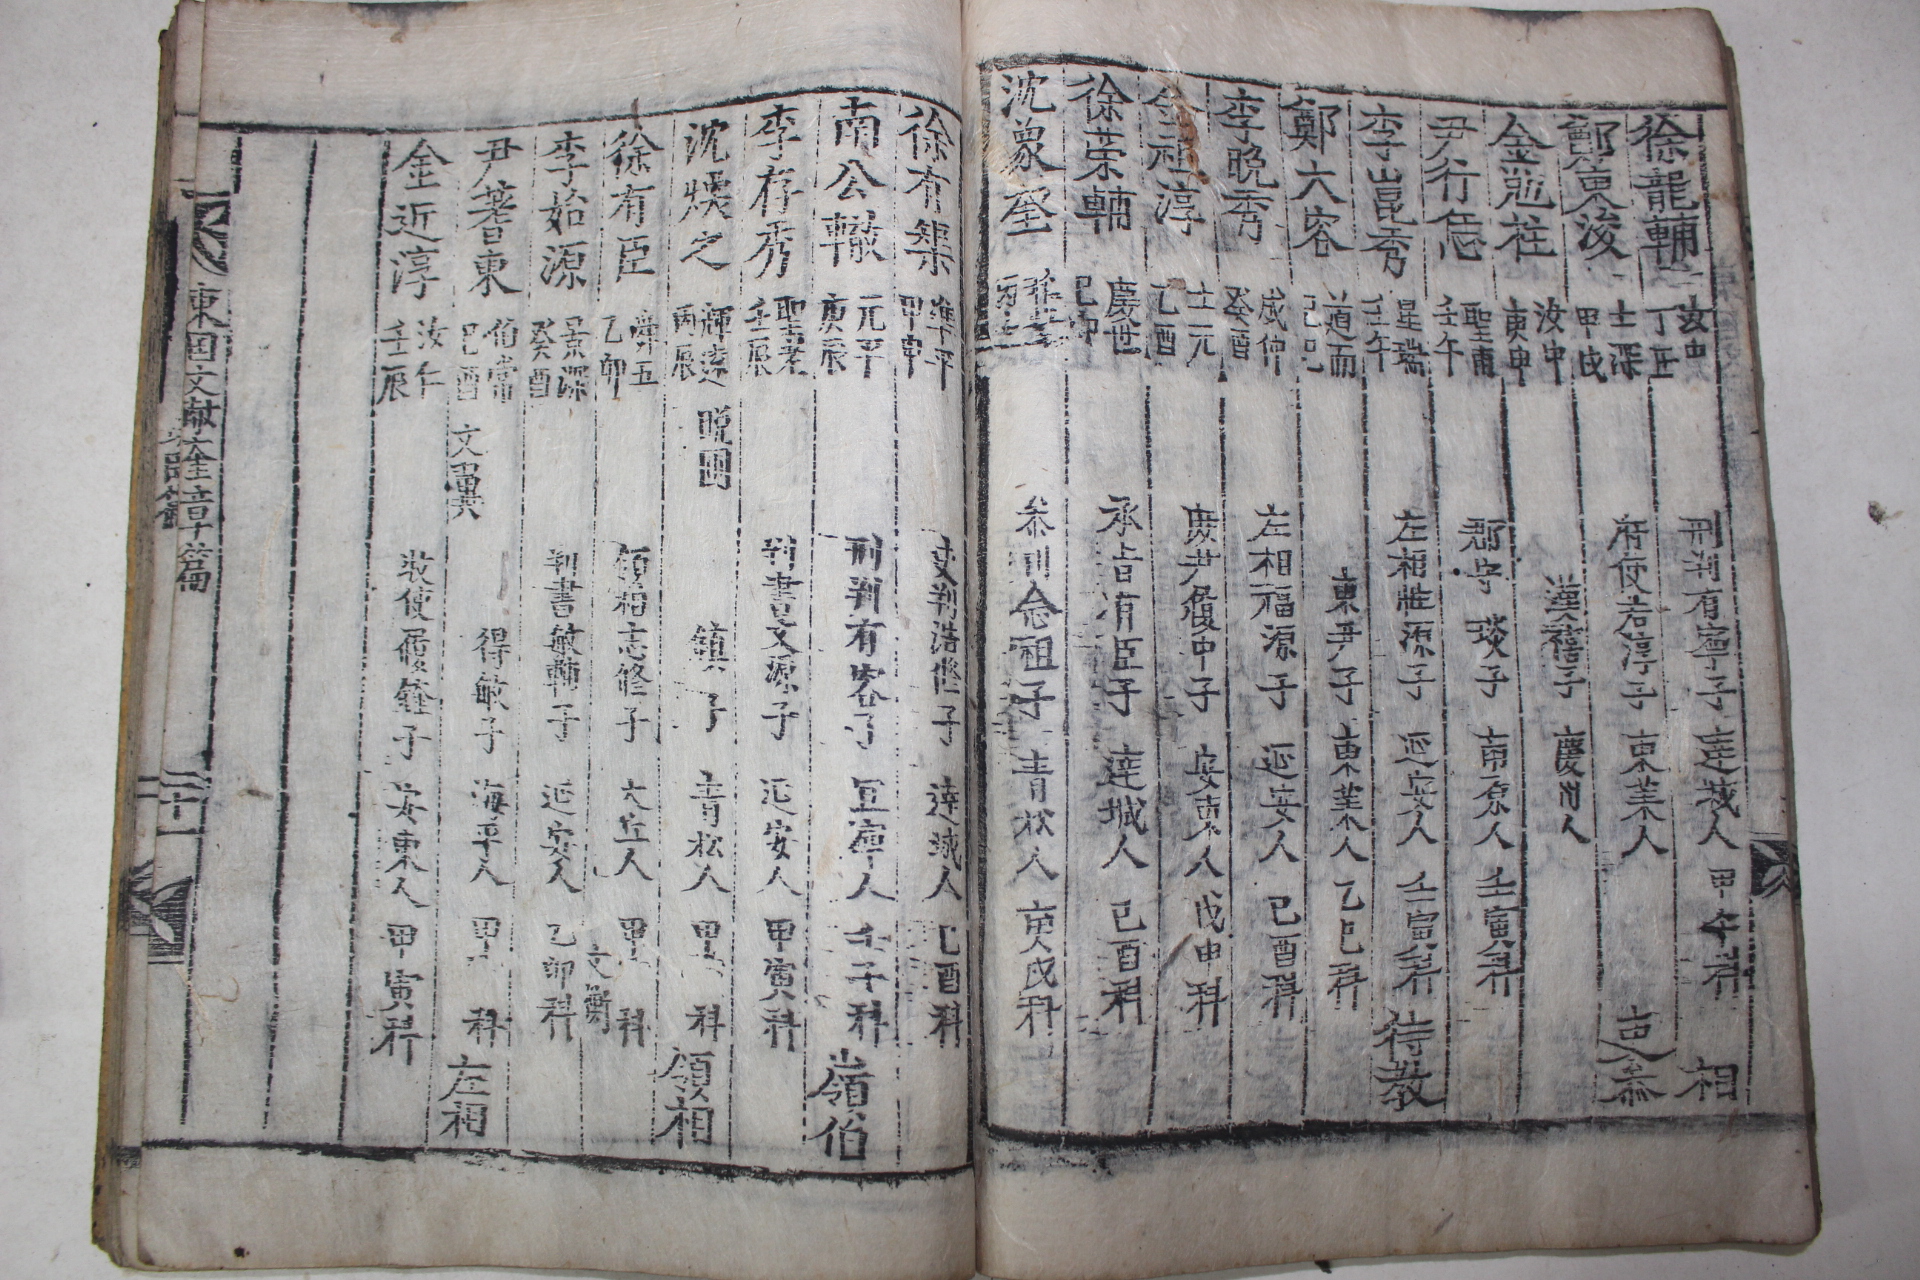 徐龍輔 汝中 丁丑 刑判有寧子 達城人 甲午科 相
鄭東浚 士深 甲戌 府使若淳子 東萊人
金勉柱 汝中 庚申 漢禧子 慶州人
尹行恁 聖甫 壬午 郡守琰子 南原人 壬寅科
李崑秀 星瑞 壬午 左相性源子 延安人 壬寅科 待教
鄭大容 道而 己巳 東尹子 東萊人 乙巳科
李晚秀 成仲 癸酉 左相福源子 延安人 己酉科
金祖淳 士元 乙酉 履中子 安東人 戊申科
徐榮輔 慶世 己卯 承旨有臣子 達城人 己酉科
沈象奎 參判念祖子 青松人 庚戌科
徐有榘 準平 甲申 判浩修子 達城人 己酉科
南公轍 元平 庚辰 刑判有容子 宜寧人 壬子科 嶺伯
李存秀 聖老 壬辰 判書文源子 延安人 甲寅科
沈煐之 輝遠 丙辰 晩圃 鎮子 青松人 甲 科 領相
徐有臣 舜五 乙卯 領相志修子 大丘人 甲 科 文衡
李始源 景深 癸酉 判書敏輔子 延安人 乙卯科
尹蓍東 伯常 己酉 文 得敏子 海平人 甲 科 左相
金近淳 汝人 壬辰 牧使履鏸子 安東人 甲寅科
東國文獻奎章篇
二十一